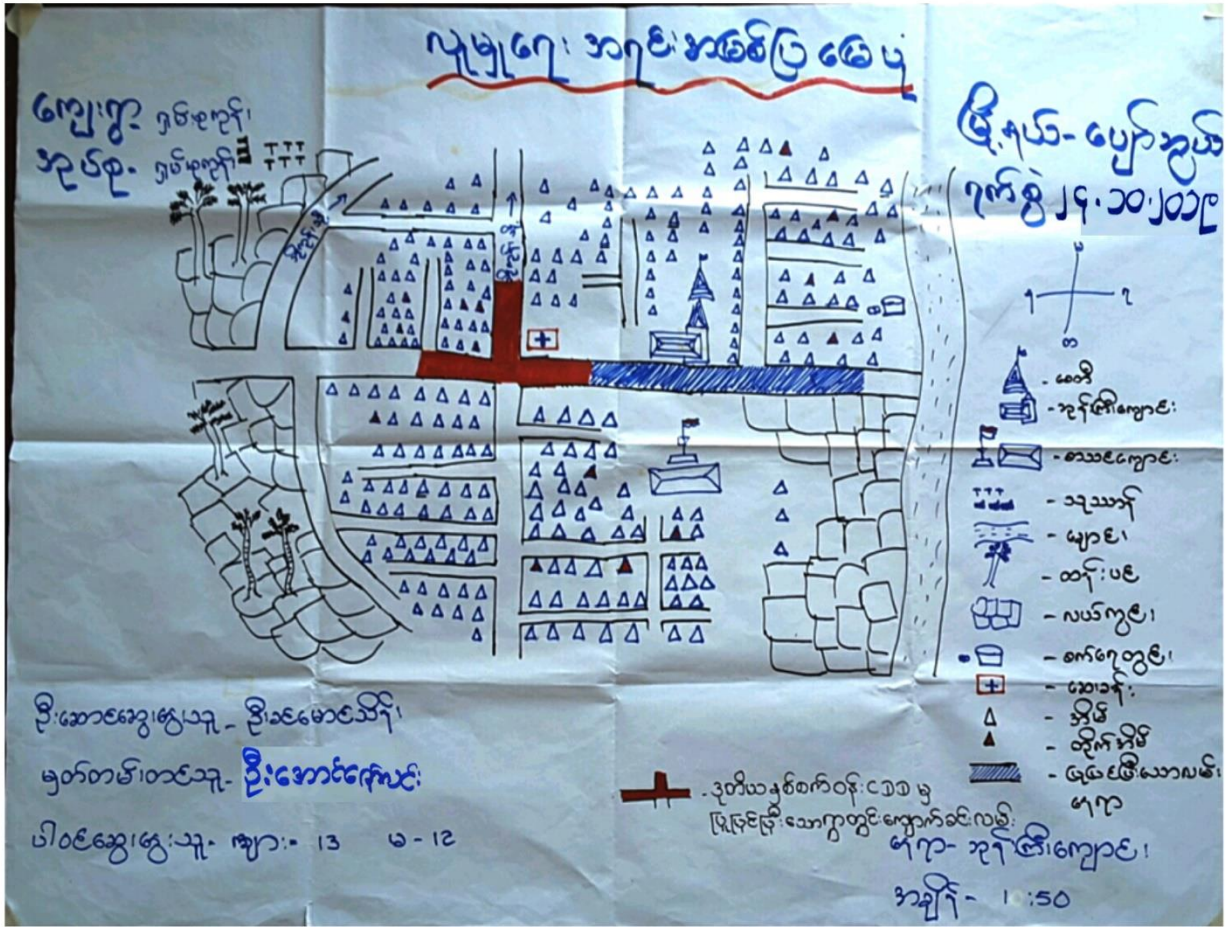 လူမှုရေး အရင်းအမြစ်ပြ မြေပုံ
ကျေးရွာ- ရှမ်းစုကုန်း
အုပ်စု- ရှမ်းစုကုန်း
မြို့နယ်- ပျော်ဘွယ်
ရက်စွဲ ၂၄.၁၀.၂၀၁၉
- စေတီ
- ဘုန်းကြီးကျောင်း
- စာသင်ကျောင်း
- သုဿာန်
- ချောင်း
- ထန်းပင်
- လယ်ကွင်း
- စက်ရေတွင်း
- ဆေးခန်း
- အိမ်
- တိုက်အိမ်
- ပြုပြင်ပြီးသောလမ်း
နေရာ
ဦးဆောင်ဆွေးနွေးသူ - ဦးခင်မောင်သိန်း
မှတ်တမ်းတင်သူ- ဦးအောင်ဇော်လင်း
ပါဝင်ဆွေးနွေးသူ- ကျား- 13 မ-12
- ဒုတိယနှစ်စက်ဝန်း CDD မှ
ပြုပြင်ပြီးသောရွာတွင်းကျောက်ခင်းလမ်း
နေရာ- ဘုန်းကြီးကျောင်း
အချိန်-